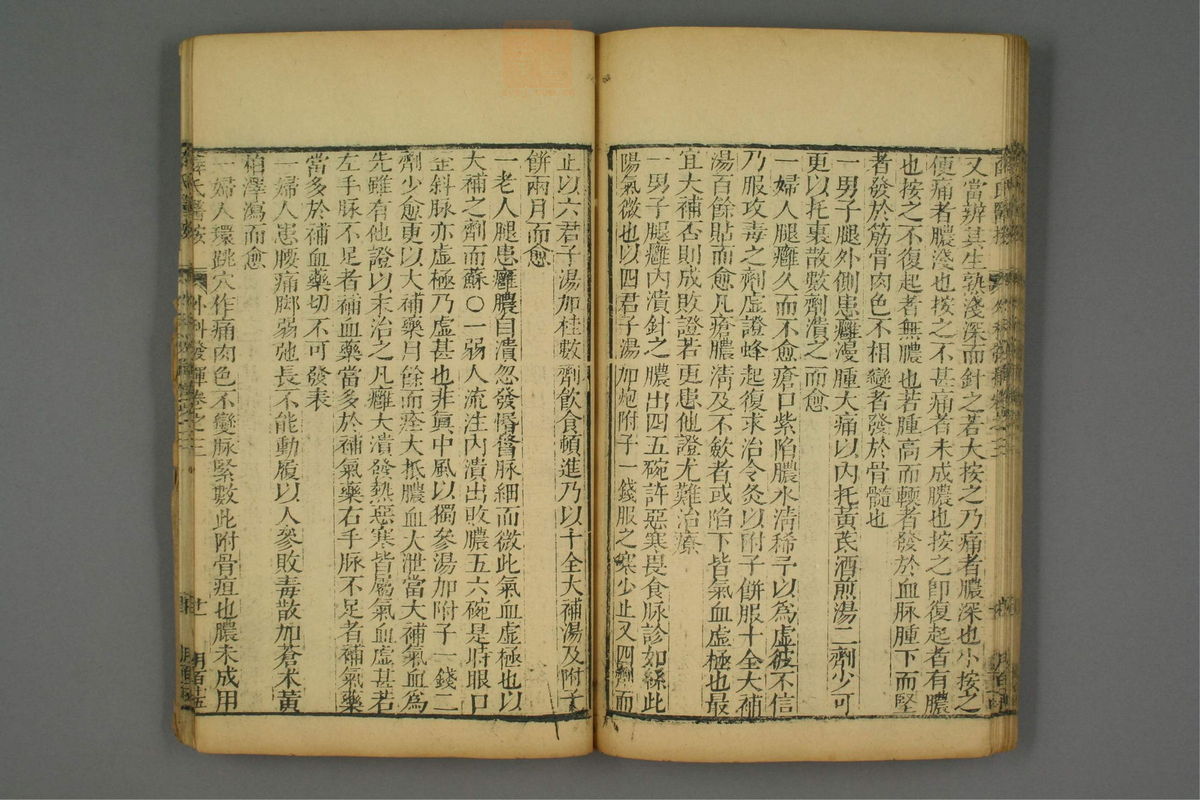 又當辨其生孰淺深而針之若大按之乃痛者膿深也小按之
便痛者膿淺也按之不甚痛者未成膿也按之即復起者有膿
也按之不復起者無膿也若腫高而軟者發於血脉腫下而堅
者發於筋骨肉色不相變者發於骨髓也
一男子腿外側患癰漫腫大痛以內托黃芪酒煎湯二劑少可
更以托裏散數劑潰之而愈
一婦人腿癰久而不愈瘡口紫陷膿水清稀予以為虛彼不信
乃服攻毒之劑虛證蜂起復求治令灸以附子餅服十全大補
湯百餘貼而愈凡瘡膿清及不歛者或陷下皆氣血虛極也最
宜大補否則成敗證若更患他證尤難治療
一男子腿癰內潰針之膿出四五碗許惡寒畏食脉診如絲此
陽氣微也以四君子湯加炮附子一錢服之寒少止又四劑而
止以六君子湯加桂數劑飲食頓進乃以十全大補湯及附子
餅兩月而愈
一老人腿患癰膿自潰忽發昏瞀脉細而微此氣血虛極也以
大補之劑而蘇〇一弱人流注內潰出敗膿五六碗是時眼口
歪斜脉亦虛極乃虛甚也非眞中風以獨參湯加附子一錢二
劑少愈更以大補藥月餘而痊大抵膿血大泄當大補氣血為
先雖有他證以末治之凡癰大潰發熱惡寒皆屬氣血虛甚若
左手脉不足者補血藥當多於補氣藥右手脉不足者補氣藥
當多於補血藥切不可發表
一婦人患腰痛脚弱弛長不能動履以人參敗毒散加蒼朮黃
栢澤瀉而愈
一婦人環跳穴作痛肉色不變脉緊數此附骨疽也膿未成用
薛氏醫按 外科發揮卷之三